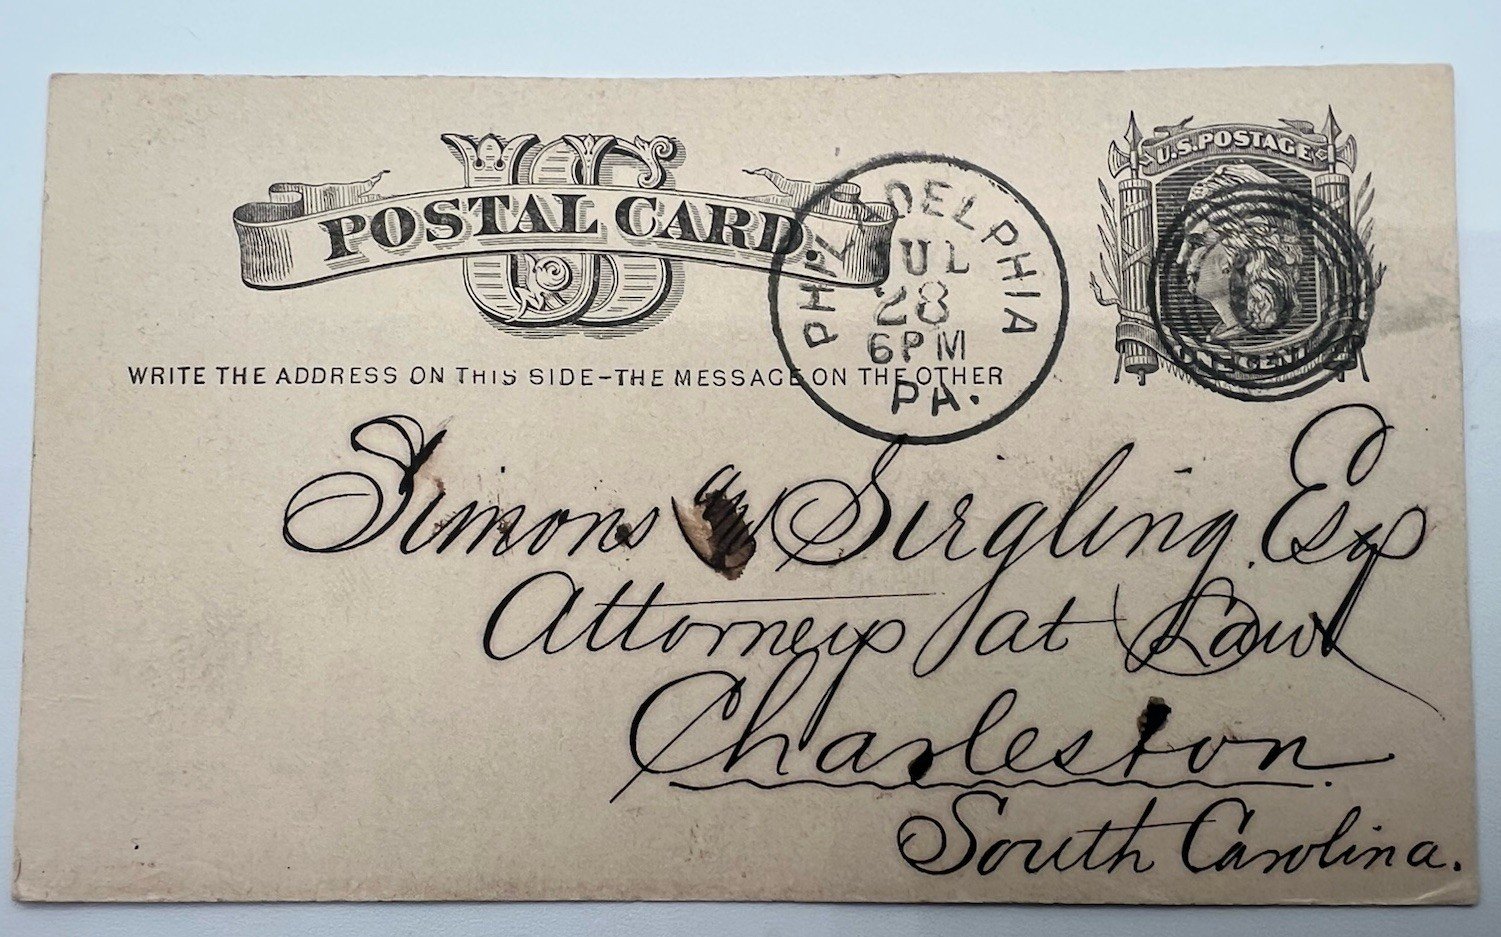 US
POSTAL CARD
WRITE THE ADDRESS ON THIS SIDE-THE MESSAGE ON THE OTHER
PHILADELPHIA
JUL
28
6PM
PA.
U.S. POSTAGE
ONE CENT
Simons & Siegling. Esqs
Attorneys at Law
Charleston.
South Carolina.